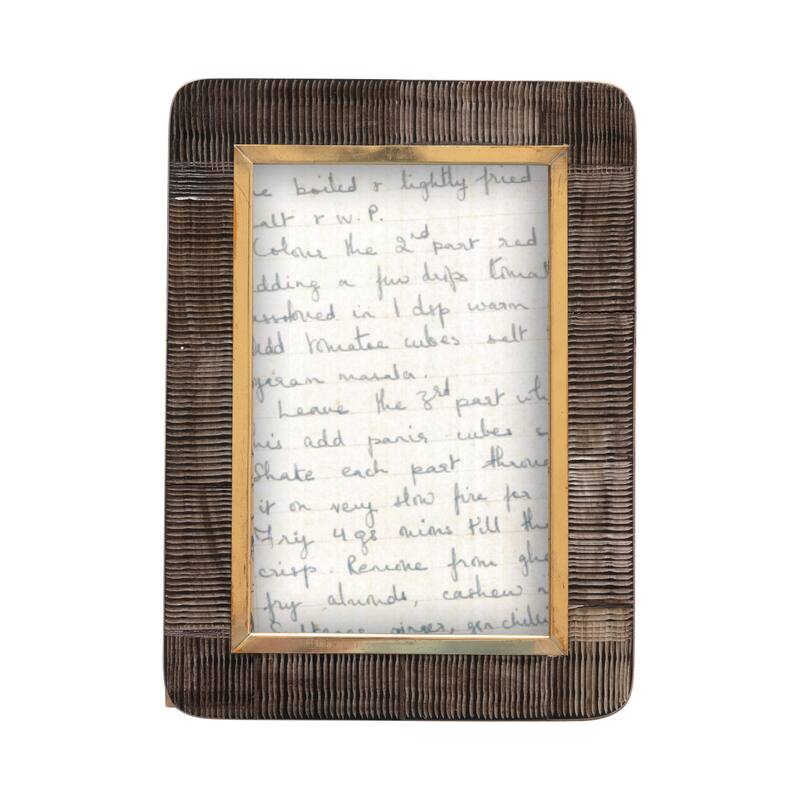 e boiled & lightly fried
alt & W.P.
Colour the 2nd part red
dding a few drops tomat
in 1 dsp warm
add tomatoe cubes salt
garam masala.
Leave the 3rd part wh
his add panir cubes s
Shake each part throug
it on very slow fire for
Fry 4 gs onions till the
crisp. Remove from ghe
fry almonds, cashew n
ginger, grn chilli